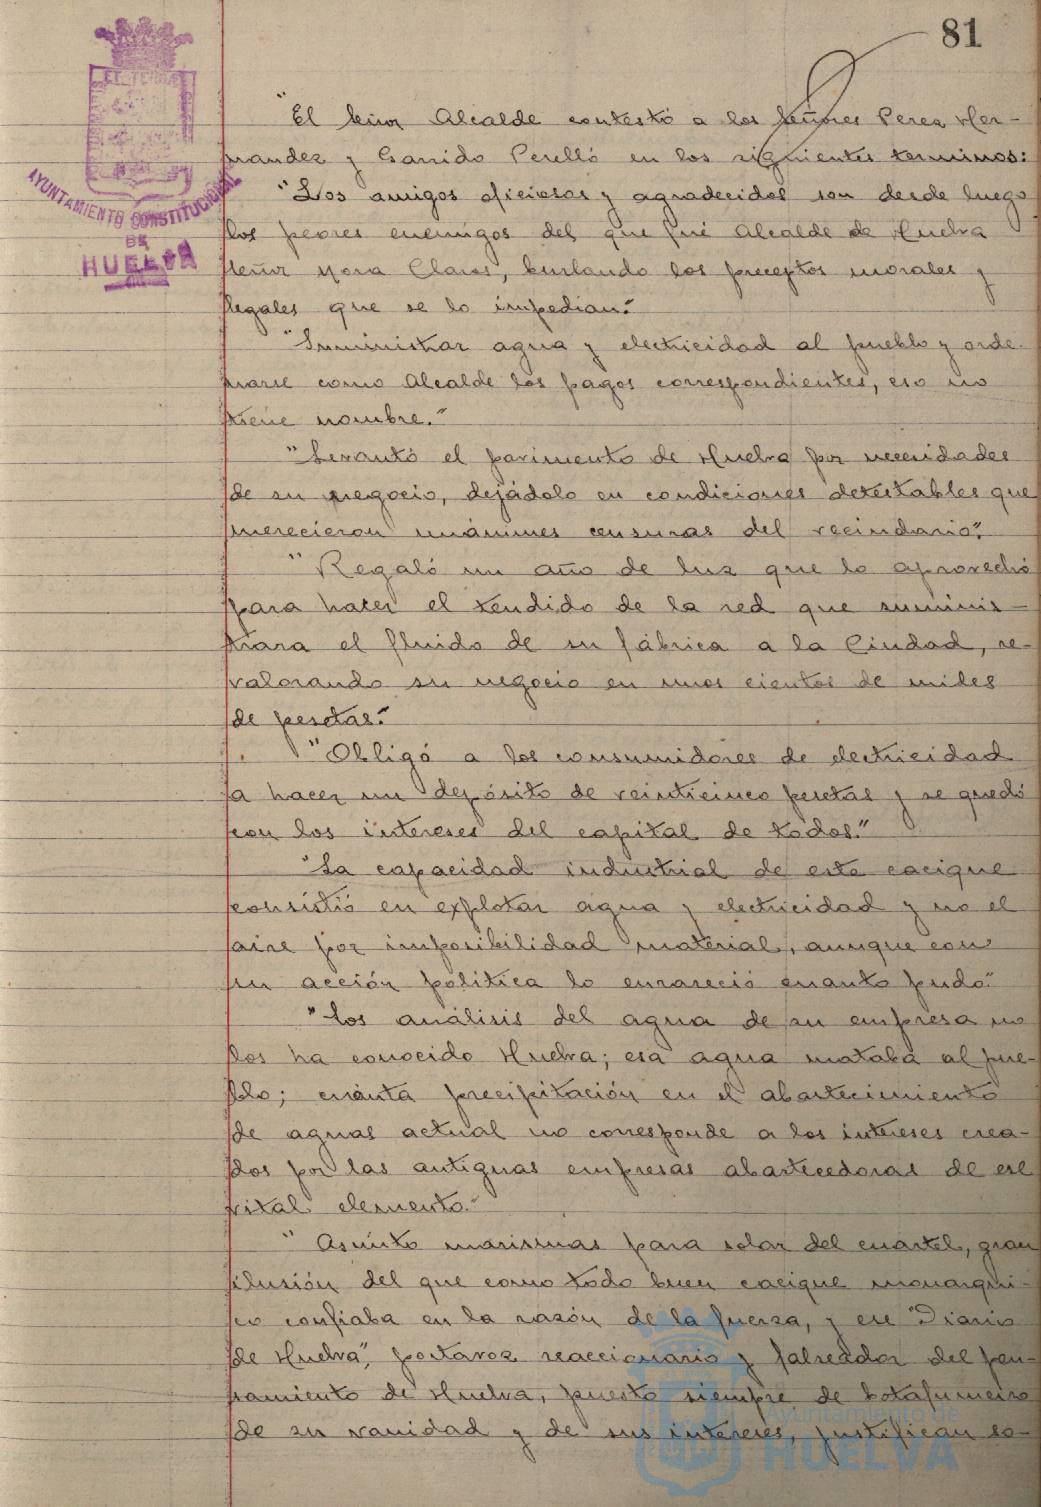 81
AYUNTAMIENTO CONSTITUCIONAL
DE
HUELVA
"El Señor Alcalde contestó a los señores Perez Her-
nandez y Garrido Perelló en los siguientes terminos:
"Los amigos oficiosos y agradecidos son desde luego
los peores enemigos del que fué Alcalde de Huelva
Señor Mora Claros, burlando los preceptos morales y
legales que se lo impedian."
"Suministrar agua y electricidad al pueblo y orde-
narse como Alcalde los pagos correspondientes, eso no
tiene nombre."
"Levantó el pavimento de Huelva por necesidades
de su negocio, dejádolo en condiciones detestables que
merecieron unánimes censuras del vecindario".
"Regaló un año de luz que lo aprovechó
para hacer el tendido de la red que suminis-
trara el fluido de su fábrica a la Ciudad, re-
valorando su negocio en unos cientos de miles
de pesetas."
"Obligó a los consumidores de electricidad
a hacer un depósito de veinticinco pesetas y se quedó
con los intereses del capital de todos."
"La capacidad industrial de este cacique
consistió en explotar agua y electricidad y no el
aire por imposibilidad material, aunque con
su acción politica lo enrareció cuanto pudo."
"Los análisis del agua de su empresa no
los ha conocido Huelva; esa agua mataba al pue-
blo; cuánta precipitación en el abastecimiento
de aguas actual no corresponde a los intereses crea-
dos por las antiguas empresas abastecedoras de ese
vital elemento."
"Asunto marismas para solar del cuartel, gran
ilusión del que como todo buen cacique monarqui-
co confiaba en la razón de la fuerza, y ese "Diario
de Huelva", portavoz reaccionario y falseador del pen-
samiento de Huelva, puesto siempre de botafumeiro
de su vanidad y de sus intereses, justifican so-
Ayuntamiento de
HUELVA